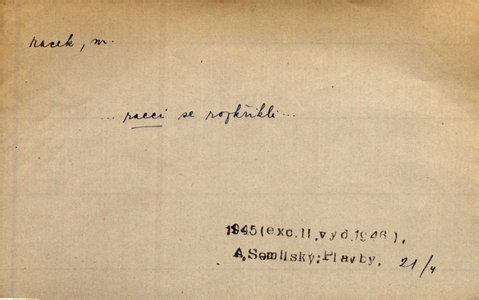 racek, m.
... racci se rozkřikli ...
1945(exc.II.vyd.1946),
A.Semilský:Plavby,
21/4